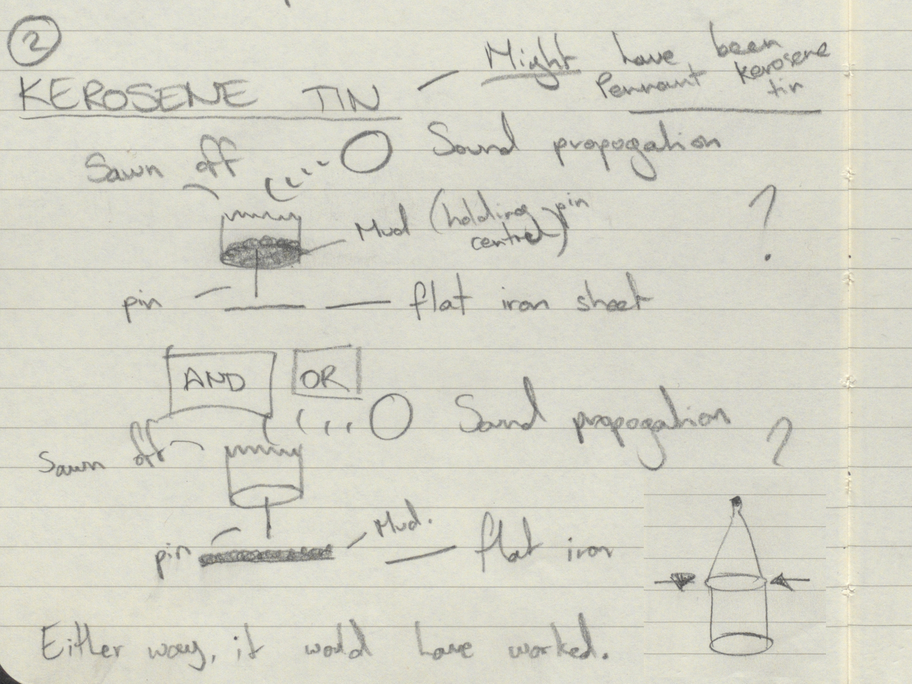 2
KEROSENE TIN — Might have been
Pennant kerosene
tin
Sawn off
Sound propogation
Mud (holding pin
central)
?
pin
flat iron sheet
AND OR
Sound propogation
?
Sawn off
Mud.
pin
flat iron
Either way, it would have worked.